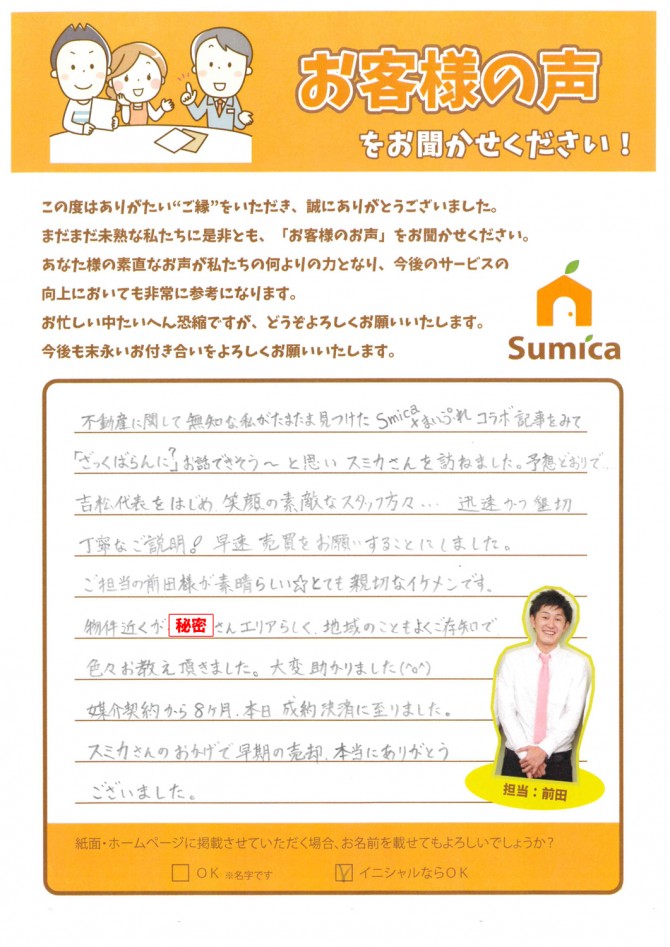 お客様の声
をお聞かせください！
この度はありがたい“ご縁”をいただき、誠にありがとうございました。
まだまだ未熟な私たちに是非とも、「お客様のお声」をお聞かせください。
あなた様の素直なお声が私たちの何よりの力となり、今後のサービスの
向上においても非常に参考になります。
お忙しい中たいへん恐縮ですが、どうぞよろしくお願いいたします。
今後も末永いお付き合いをよろしくお願いいたします。
Sumica
不動産に関して無知な私がたまたま見つけた Smica+まいぷれ コラボ記事をみて
「ざっくばらんに？」お話できそう～と思い スミカさんを訪ねました。予想どおりで…
吉松代表をはじめ 笑顔の素敵なスタッフ方々… 迅速かつ懇切
丁寧なご説明！早速 売買をお願いすることにしました。
ご担当の前田様が素晴らしい☆とても親切なイケメンです。
物件近くが 秘密 さんエリアらしく、地域のこともよくご存知で
色々お教え頂きました。大変助かりました(^o^)
媒介契約から8ヶ月、本日 成約決済に至りました。
スミカさんのおかげで早期の売却、本当にありがとう
ございました。
担当：前田
紙面・ホームページに掲載させていただく場合、お名前を載せてもよろしいでしょうか？
□ OK ※名字です ☑ イニシャルならOK